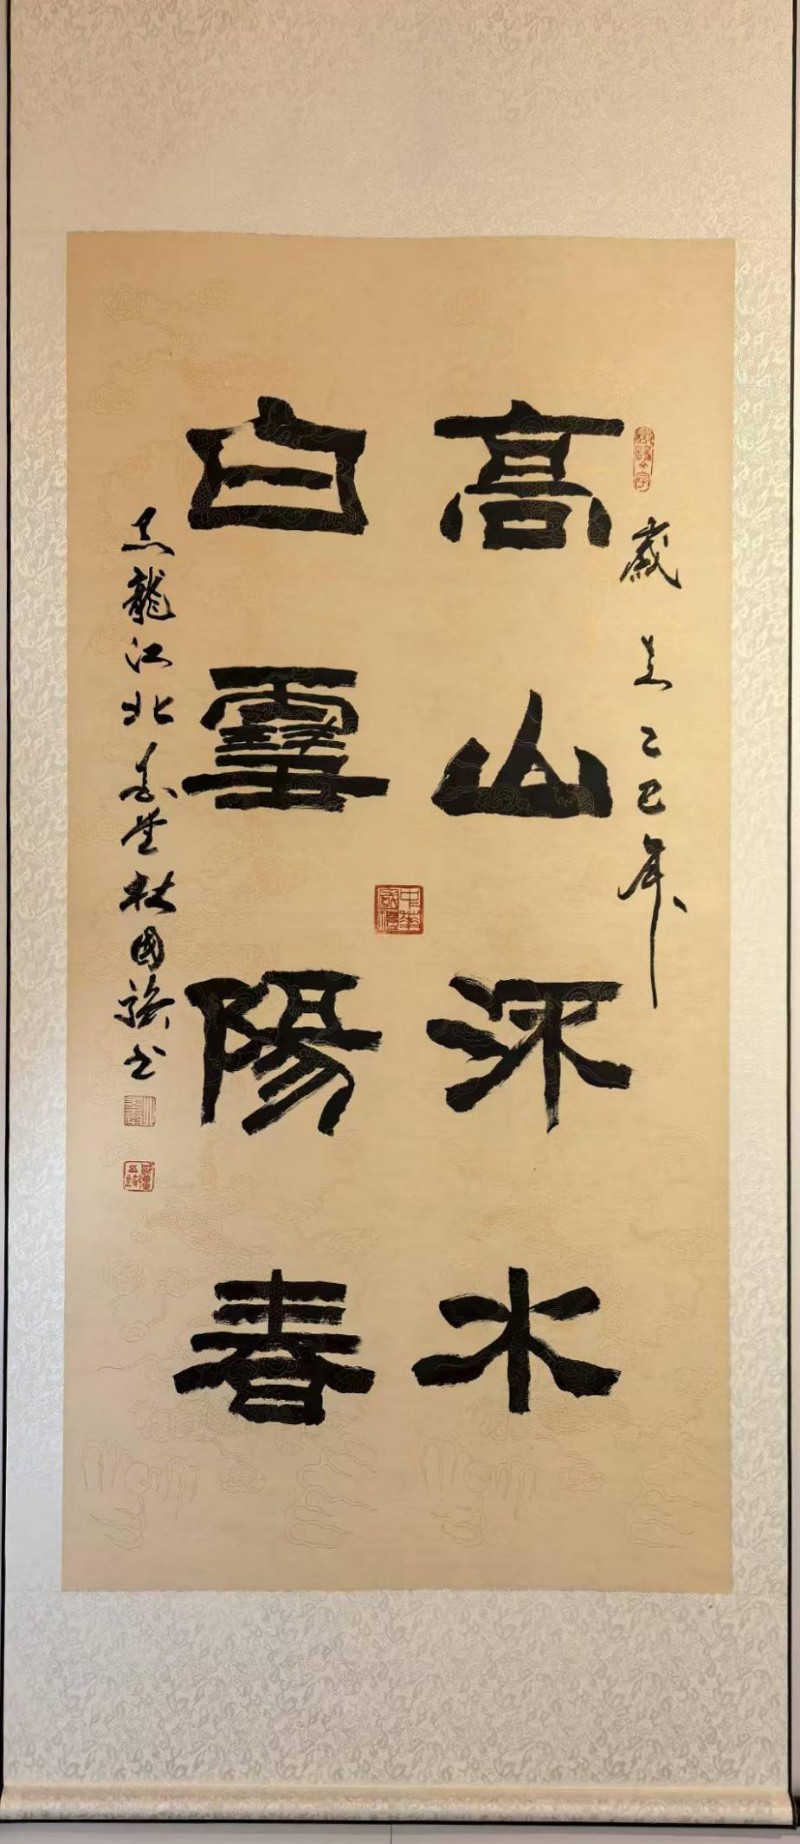 歲在乙巳年
高山流水
白雪陽春
黑龍江北杜國書